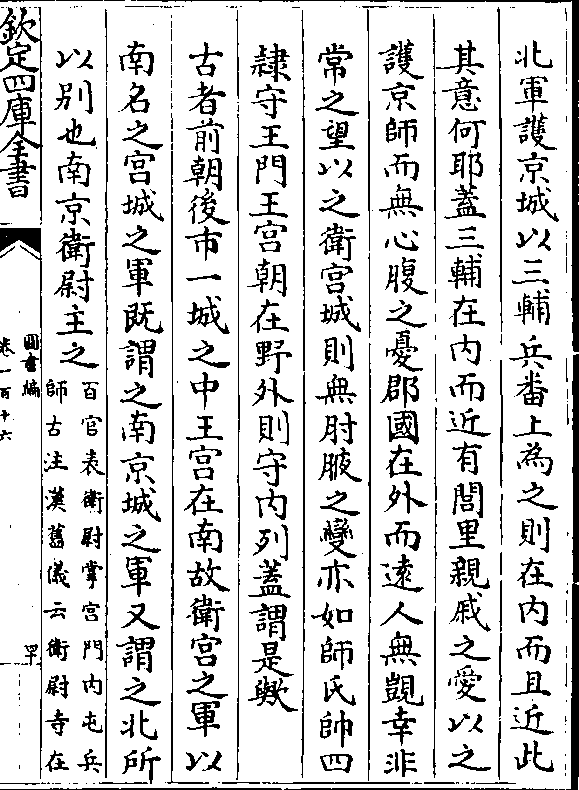 北軍護京城以三輔兵番上為之則在内而且近此
其意何耶蓋三輔在内而近有閭里親戚之愛以之
護京師而無心腹之憂郡國在外而逺人無覬幸非
常之望以之衛宫城則無肘腋之變亦如師氏帥四
隷守王門王宫朝在野外則守内列蓋謂是歟
古者前朝後市一城之中王宫在南故衛宫之軍以
南名之宫城之軍既謂之南京城之軍又謂之北所
以别也南京衛尉主之
百官表衛尉掌宫門内屯兵
師古注漢舊儀云衛尉寺在
欽定四庫全書
圖書編
卷一百十六